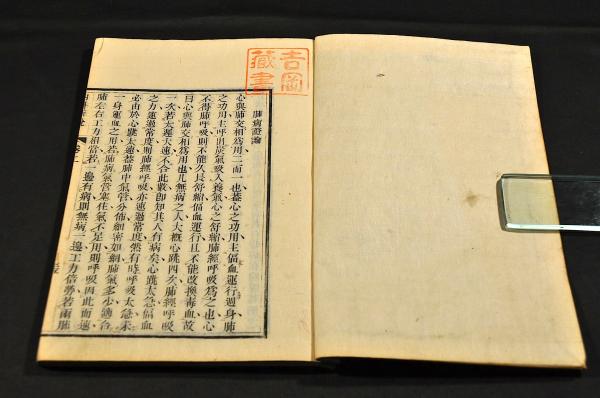 吉岡
藏書
肺病證論
心與肺交相爲用二而一也蓋心之功用主偪血運行週身肺
之功用主呼出炭氣吸入養氣心之舒縮肺經呼吸爲之也心
不得肺呼吸則不能久長舒縮偪血運行且不能改換毒血故
曰心與肺交相爲用也凡無病之人大概心跳四次肺經呼吸
一次若太遲太速不合此數卽知其人有病矣心跳太急偪血
之力運過常度則肺經呼吸亦運過常度然有時呼吸太急未
必由於心跳太速蓋肺中氣管分佈細密如網肺氣多少適合
一身運血之用若肺病氣管塞住氣不足用則呼吸因此而速
肺左右工力相倍若一邊有病則無病一邊工力倍勞若兩肺